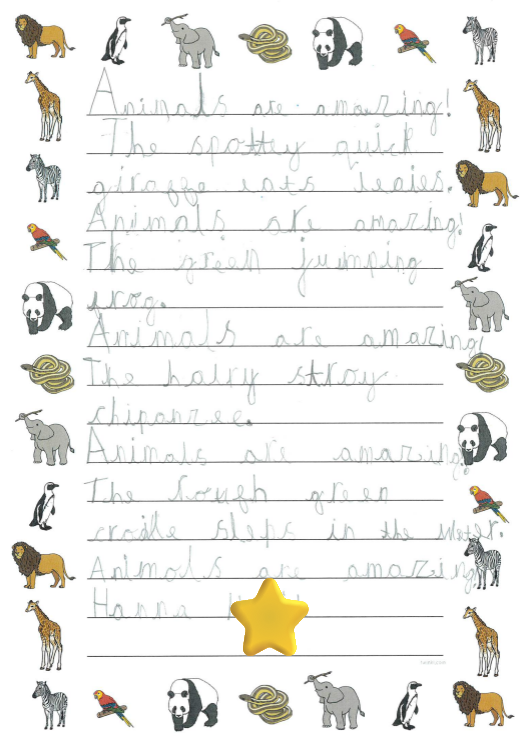 Animals are amazing!
The spottey quick
giraffe eats leaies.
Animals are amazing!
The green jumping
frog.
Animals are amazing!
The hairy stroy
chipanzee.
Animals are amazing!
The tough green
crodile sleps in the water.
Animals are amazing
Hanna